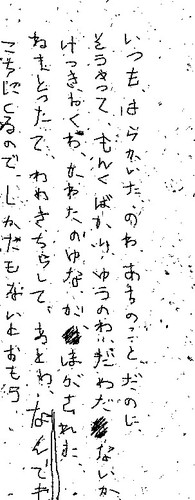 いつも、はらかいた、のわ、あちのことだのに
そうやって、もんくばかり、ゆうのわだわだないか
けっきおくわ、かねたのゆな、がほがされた
ねもとったて、わわきちらして、あとわ、なんでも
こちにくるので、しかだもないよおもう